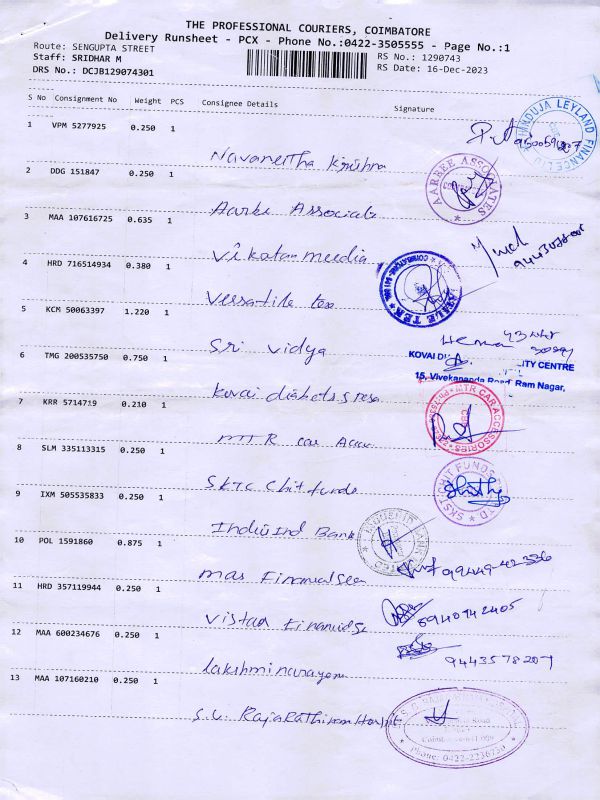 THE PROFESSIONAL COURIERS, COIMBATORE
Delivery Runsheet - PCX - Phone No.:0422-3505555 - Page No.:1
Route: SENGUPTA STREET
RS No.: 1290743
Staff: SRIDHAR M
RS Date: 16-Dec-2023
DRS No.: DCJB129074301
S No Consignment No Weight PCS Consignee Details Signature
1 VPM 5277925 0.250 1
HINDUJA LEYLAND FINANCE LTD
Navaneetha Krishna
2 DDG 151847 0.250 1
AARBEE ASSOCIATES
Aarbe Associats
3 MAA 107616725 0.635 1
Vikatan meedia
4 HRD 716514934 0.380 1
Versatile tex
5 KCM 50063397 1.220 1
Sri vidya
Hema
6 TMG 200535750 0.750 1
KOVAI CITY CENTRE
15, Vivekananda Road, Ram Nagar,
Kovai diabets
7 KRR 5714719 0.210 1
MTR CAR ACCESSORIES
MTR car
8 SLM 335113315 0.250 1
SKTC Chit funds
SKSTCHIT FUNDS
9 IXM 505535833 0.250 1
IndusInd Bank
10 POL 1591860 0.875 1
mas Financial
99449-42336
11 HRD 357119944 0.250 1
Vistaar
8940742405
12 MAA 600234676 0.250 1
lakshminarayana
9443578207
13 MAA 107160210 0.250 1
S.V. Rajarathinam
Phone: 0422-2236750